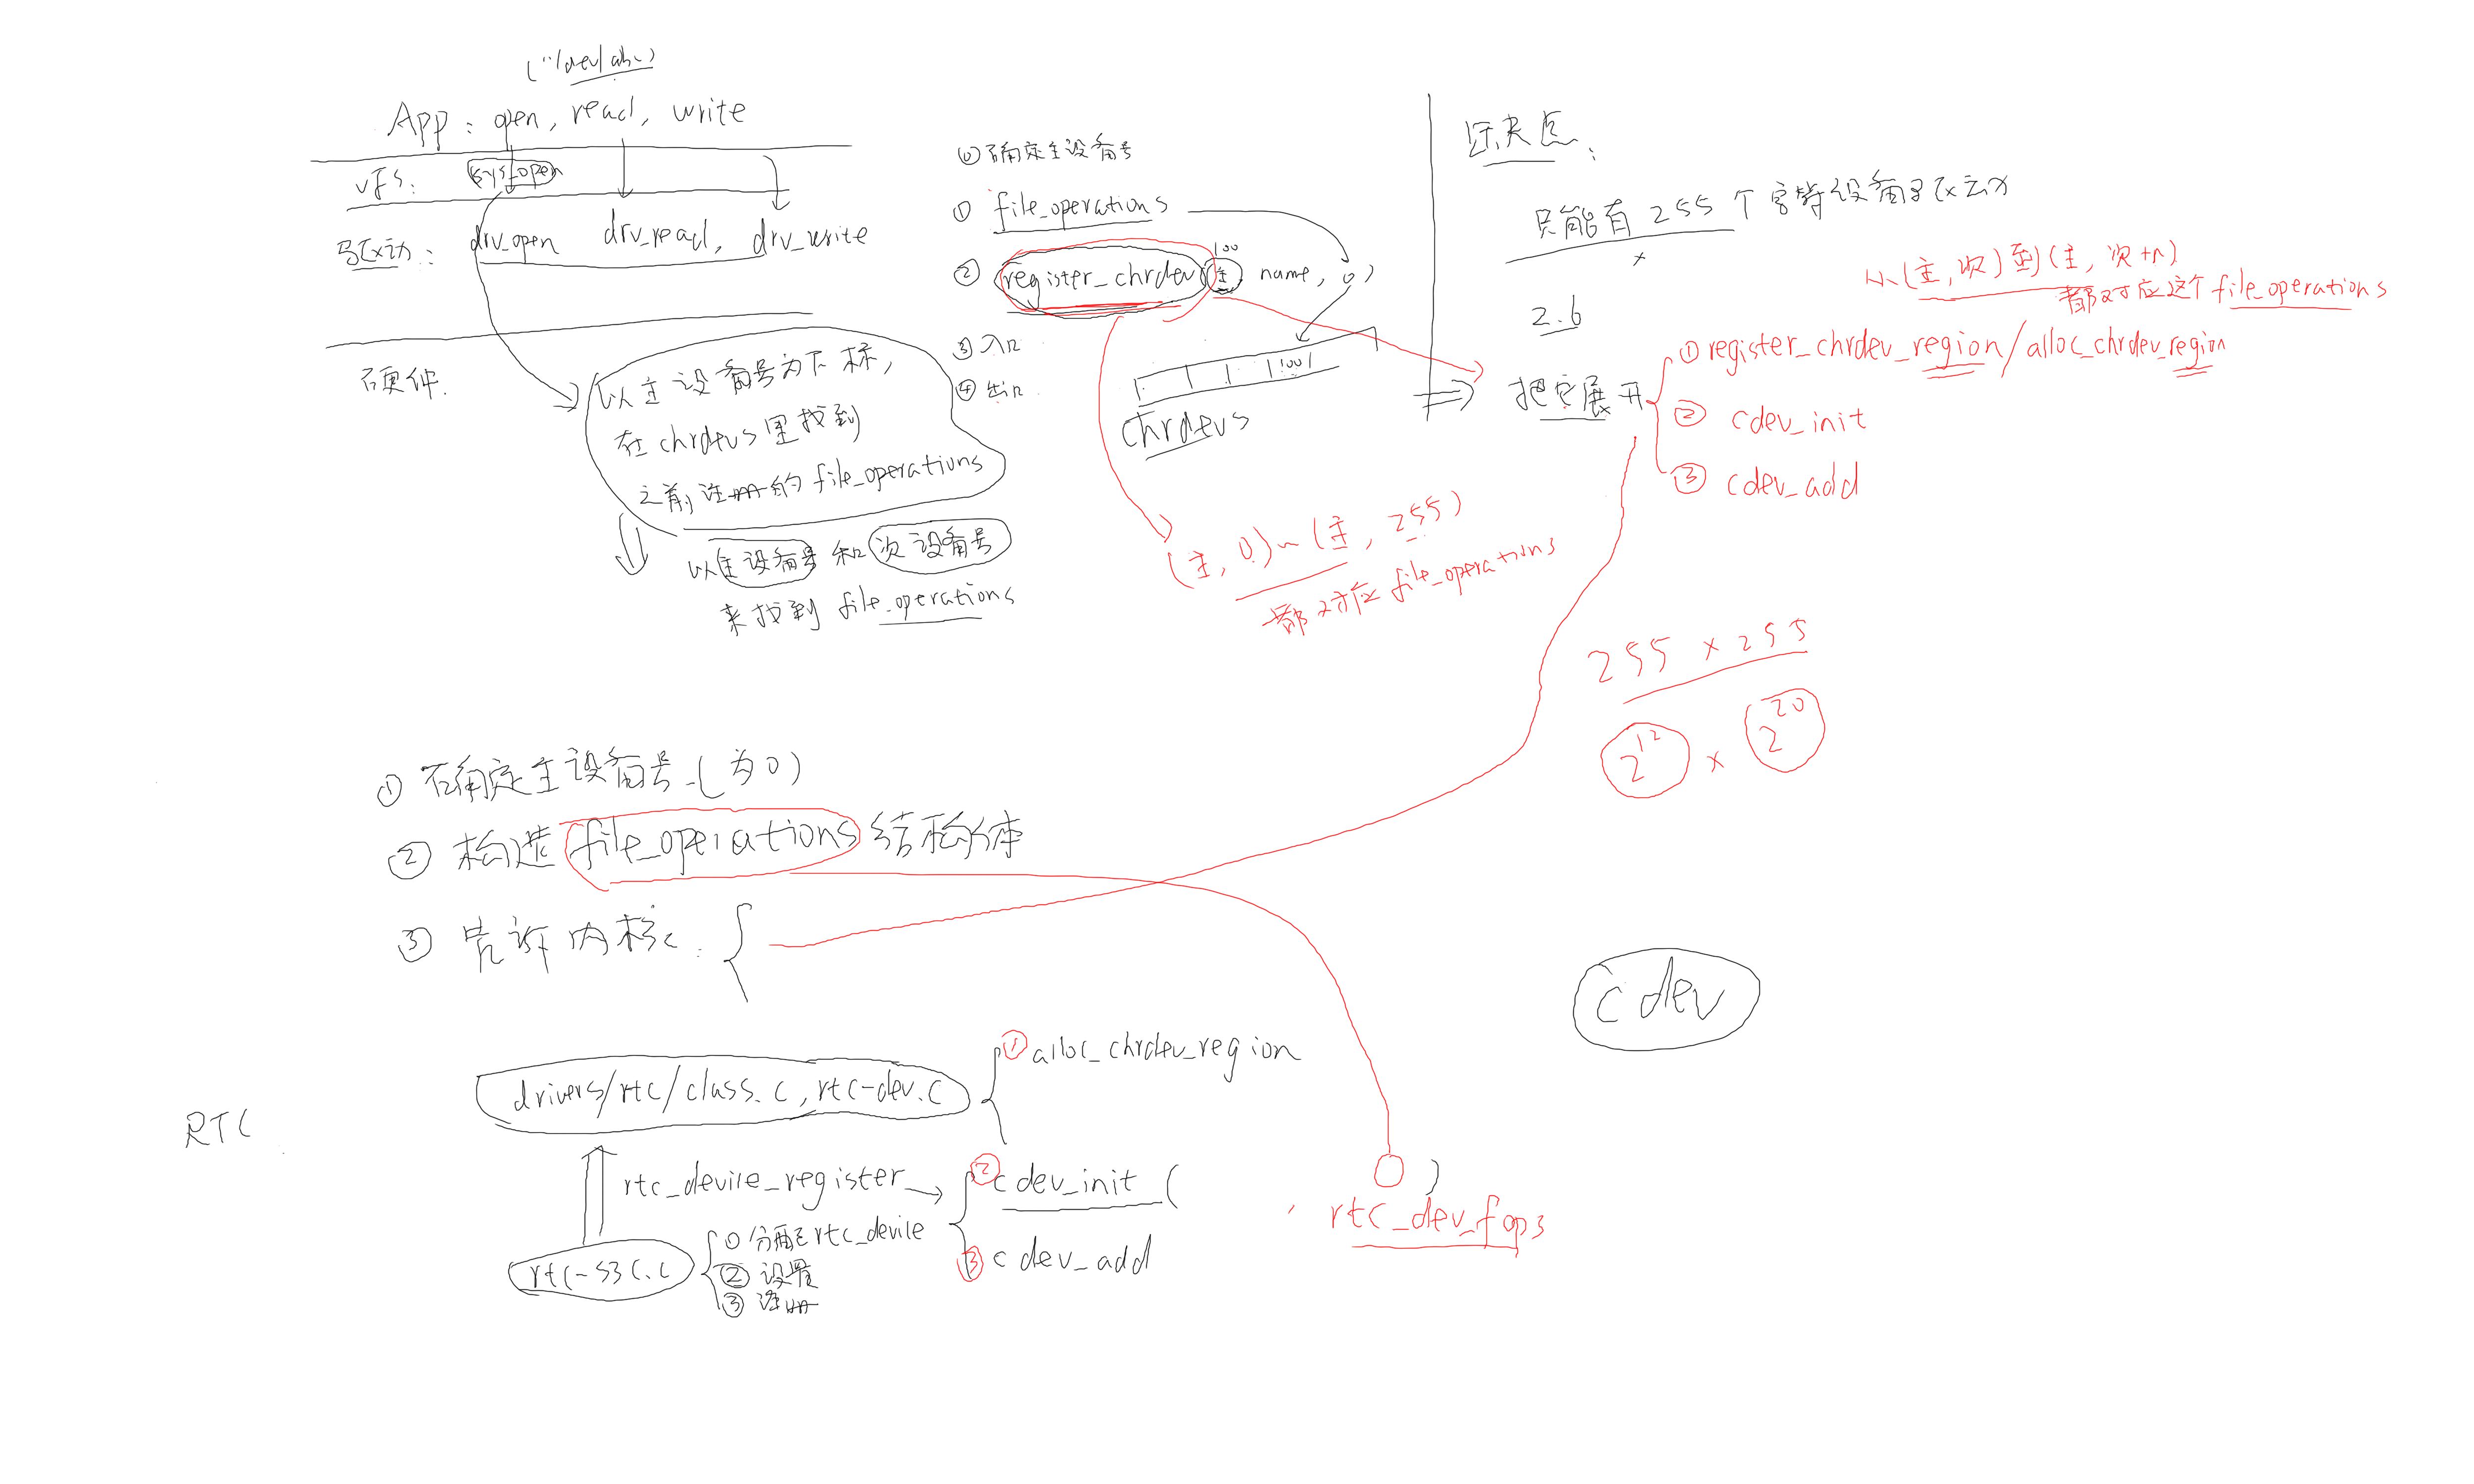 ("/dev/abc)
App: open, read, write
VFS: sys_open
驱动: drv_open drv_read, drv_write
硬件.
以主设备号为下标,
在chrdevs里找到
之前注册的file_operations
以主设备号和次设备号
来找到 file_operations
⓪确定主设备号
① file_operations
100
② register_chrdev(主 name, o)
③入口
④出口
100
chrdevs
(主, 0)~(主, 255)
都对应 file_operations
缺点:
只能有 255 个字符设备驱动
x
2.6
把它展开
从(主,次)到(主, 次+n)
都对应这个 file_operations
① register_chrdev_region/alloc_chrdev_region
② cdev_init
③ cdev_add
255 x 255
2^12 x 2^20
① 确定主设备号 (为0)
② 构造 file_operations 结构体
③ 告诉内核:
cdev
RTC
drivers/rtc/class.c, rtc-dev.c
① alloc_chrdev_region
rtc_device_register
② cdev_init ( )
rtc_dev_fops
③ cdev_add
rtc-s3c.c
① 分配rtc_device
② 设置
③ 注册